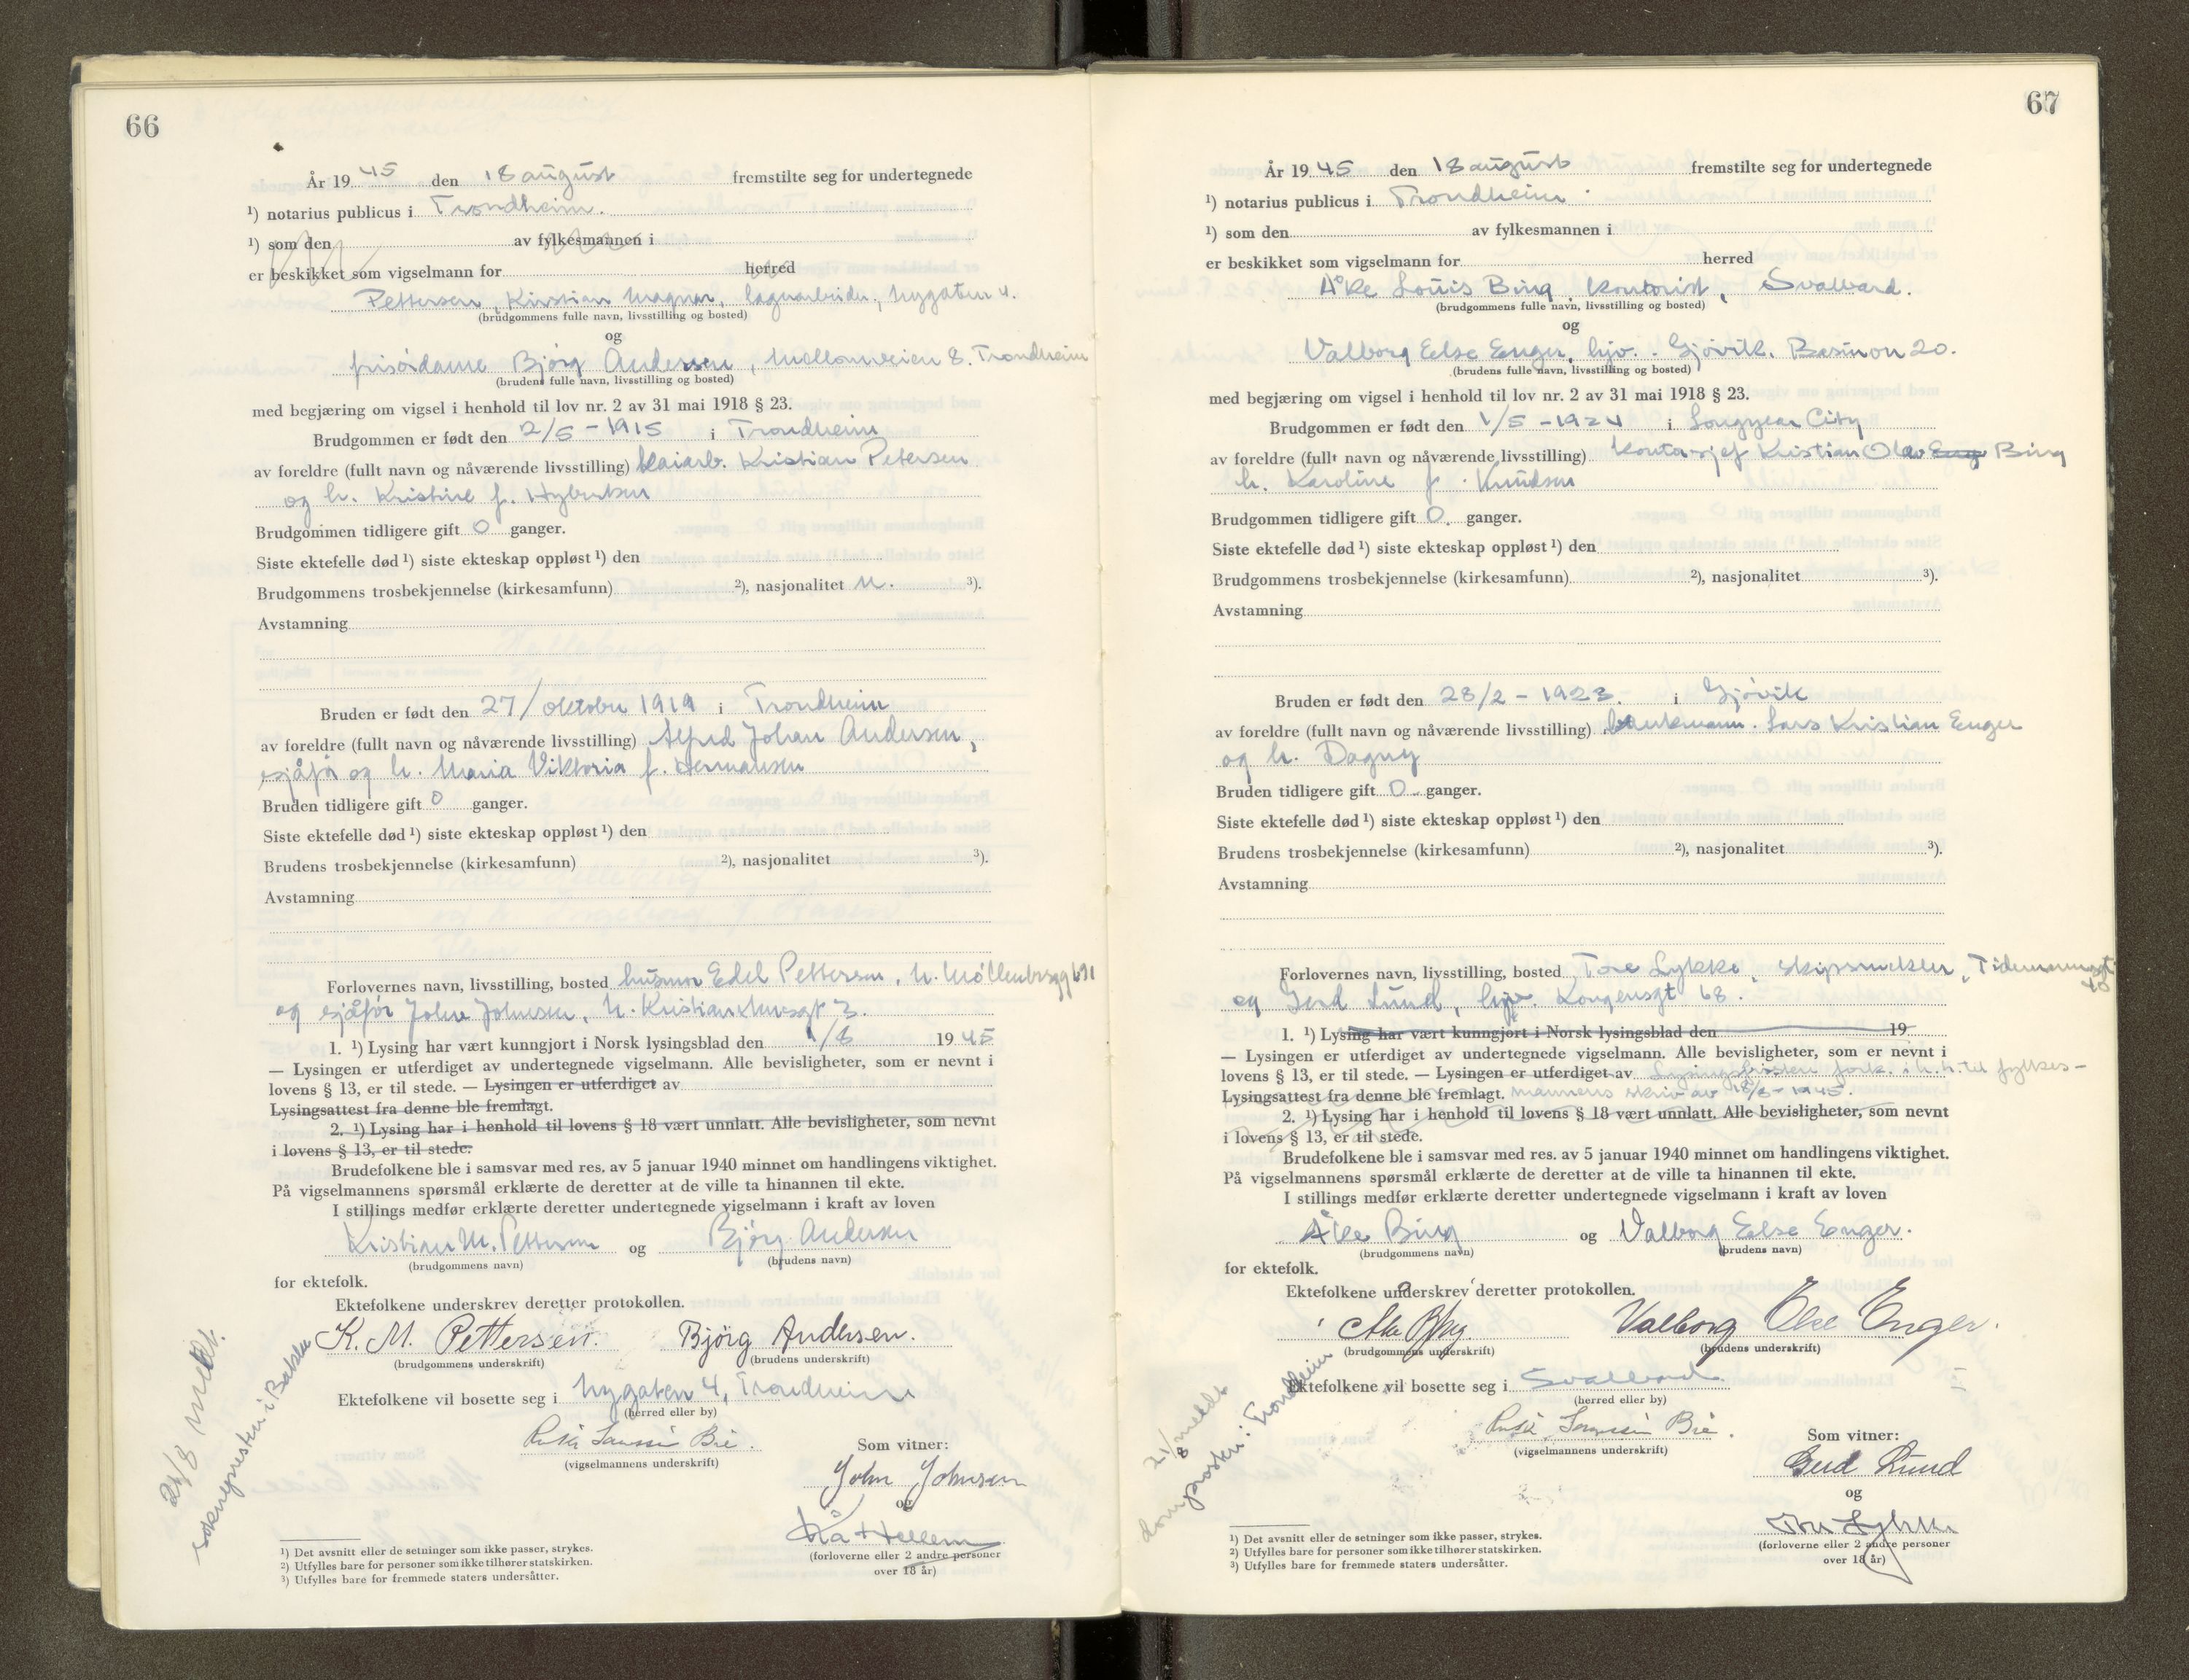 66
År 19 45 den 18 august fremstilte seg for undertegnede
¹) notarius publicus i Trondheim.
¹) som den av fylkesmannen i
er beskikket som vigselmann for herred
Pettersen, Kristian Magnar, lagerarbeider, Nygaten 4.
(brudgommens fulle navn, livsstilling og bosted)
og
frisördame Bjørg Andersen, Mellomveien 8. Trondheim
(brudens fulle navn, livsstilling og bosted)
med begjæring om vigsel i henhold til lov nr. 2 av 31 mai 1918 § 23.
Brudgommen er født den 2/5 - 1915 i Trondheim
av foreldre (fullt navn og nåværende livsstilling) kaiarb. Kristian Petersen
og h. Kristine f. Hybertsen
Brudgommen tidligere gift 0 ganger.
Siste ektefelle død ¹) siste ekteskap oppløst ¹) den
Brudgommens trosbekjennelse (kirkesamfunn) ²), nasjonalitet n. ³).
Avstamning
Bruden er født den 27/oktober 1919 i Trondheim
av foreldre (fullt navn og nåværende livsstilling) Alfred Johan Andersen,
sjåfør og h. Maria Viktoria f. Hermansen
Bruden tidligere gift 0 ganger.
Siste ektefelle død ¹) siste ekteskap oppløst ¹) den
Brudens trosbekjennelse (kirkesamfunn) ²), nasjonalitet ³).
Avstamning
Forlovernes navn, livsstilling, bosted husmor Edel Pettersen, N. Möllenbergg
og sjåför John Johnsen, N.
1. ¹) Lysing har vært kunngjort i Norsk lysingsblad den 1/8 19 45
— Lysingen er utferdiget av undertegnede vigselmann. Alle bevisligheter, som er nevnt i
lovens § 13, er til stede. — Lysingen er utferdiget av
Lysingsattest fra denne ble fremlagt.
2. ¹) Lysing har i henhold til lovens § 18 vært unnlatt. Alle bevisligheter, som nevnt
i lovens § 13, er til stede.
Brudefolkene ble i samsvar med res. av 5 januar 1940 minnet om handlingens viktighet.
På vigselmannens spørsmål erklærte de deretter at de ville ta hinannen til ekte.
I stillings medfør erklærte deretter undertegnede vigselmann i kraft av loven
Kristian M. Pettersen og Bjørg Andersen
(brudgommens navn) (brudens navn)
for ektefolk.
Ektefolkene underskrev deretter protokollen.
K. M. Pettersen. Björg Andersen.
(brudgommens underskrift) (brudens underskrift)
Ektefolkene vil bosette seg i Nygaten 4, Trondheim
(herred eller by)
(vigselmannens underskrift)
Som vitner:
John Johnsen
og
Hellem
(forloverne eller 2 andre personer
over 18 år)
meldt
sokneprester i
¹) Det avsnitt eller de setninger som ikke passer, strykes.
²) Utfylles bare for personer som ikke tilhører statskirken.
³) Utfylles bare for fremmede staters undersåtter.
67
År 19 45 den 18 august fremstilte seg for undertegnede
¹) notarius publicus i Trondheim
¹) som den av fylkesmannen i
er beskikket som vigselmann for herred
Åke Louis Bing, kontorist, Svalbard.
(brudgommens fulle navn, livsstilling og bosted)
og
Valborg Else Enger, hjv. Gjövik. 20.
(brudens fulle navn, livsstilling og bosted)
med begjæring om vigsel i henhold til lov nr. 2 av 31 mai 1918 § 23.
Brudgommen er født den 1/5 - 1924 i Longyear City
av foreldre (fullt navn og nåværende livsstilling) kontorsjef Kristian Olav Bing
h. Karoline f. Knudsen
Brudgommen tidligere gift 0. ganger.
Siste ektefelle død ¹) siste ekteskap oppløst ¹) den
Brudgommens trosbekjennelse (kirkesamfunn) ²), nasjonalitet ³).
Avstamning
Bruden er født den 28/2 - 1923. i Gjövik
av foreldre (fullt navn og nåværende livsstilling) Lars Kristian Enger
og h. Dagny
Bruden tidligere gift 0 ganger.
Siste ektefelle død ¹) siste ekteskap oppløst ¹) den
Brudens trosbekjennelse (kirkesamfunn) ²), nasjonalitet ³).
Avstamning
Forlovernes navn, livsstilling, bosted Tore Lykke, skipsmekler,
og Gerd Lund, hjv. Kongensgt 68.
1. ¹) Lysing har vært kunngjort i Norsk lysingsblad den 19
— Lysingen er utferdiget av undertegnede vigselmann. Alle bevisligheter, som er nevnt i
lovens § 13, er til stede. — Lysingen er utferdiget av Lysingsfristen fork. i h.h. til fylkes-
Lysingsattest fra denne ble fremlagt. mannens skriv av 18/8 - 1945.
2. ¹) Lysing har i henhold til lovens § 18 vært unnlatt. Alle bevisligheter, som nevnt
i lovens § 13, er til stede.
Brudefolkene ble i samsvar med res. av 5 januar 1940 minnet om handlingens viktighet.
På vigselmannens spørsmål erklærte de deretter at de ville ta hinannen til ekte.
I stillings medfør erklærte deretter undertegnede vigselmann i kraft av loven
Åke Bing og Valborg Else Enger.
(brudgommens navn) (brudens navn)
for ektefolk.
Ektefolkene underskrev deretter protokollen.
Åke Bing Valborg Else Enger.
(brudgommens underskrift) (brudens underskrift)
Ektefolkene vil bosette seg i Svalbard
(herred eller by)
(vigselmannens underskrift)
Som vitner:
Gerd Lund
og
Tore Lykke
(forloverne eller 2 andre personer
over 18 år)
21/8 meldt
domprosten i Trondheim
¹) Det avsnitt eller de setninger som ikke passer, strykes.
²) Utfylles bare for personer som ikke tilhører statskirken.
³) Utfylles bare for fremmede staters undersåtter.